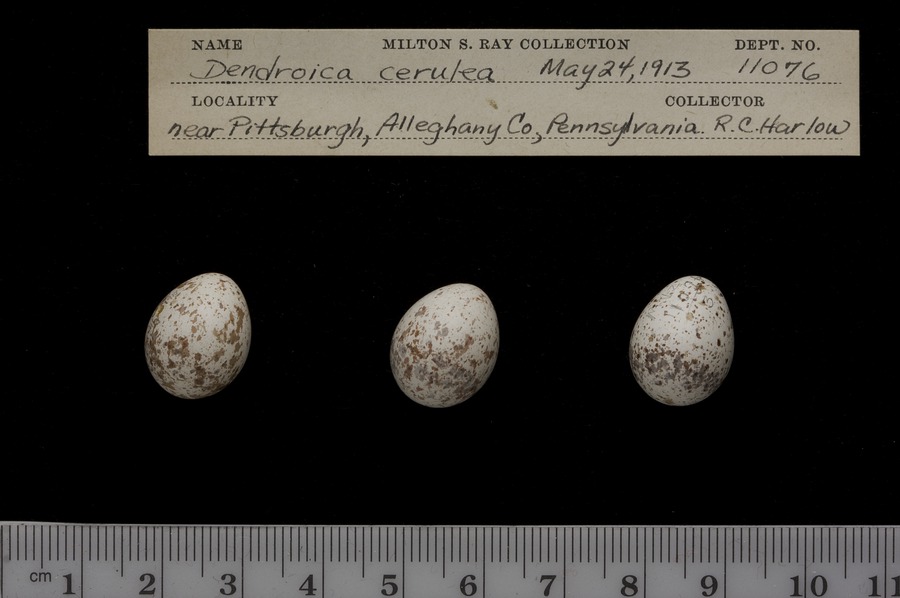 NAME MILTON S. RAY COLLECTION DEPT. NO.
Dendroica cerulea May 24, 1913 11076
LOCALITY COLLECTOR
near Pittsburgh, Alleghany Co., Pennsylvania. R.C. Harlow
cm 1 2 3 4 5 6 7 8 9 10 11